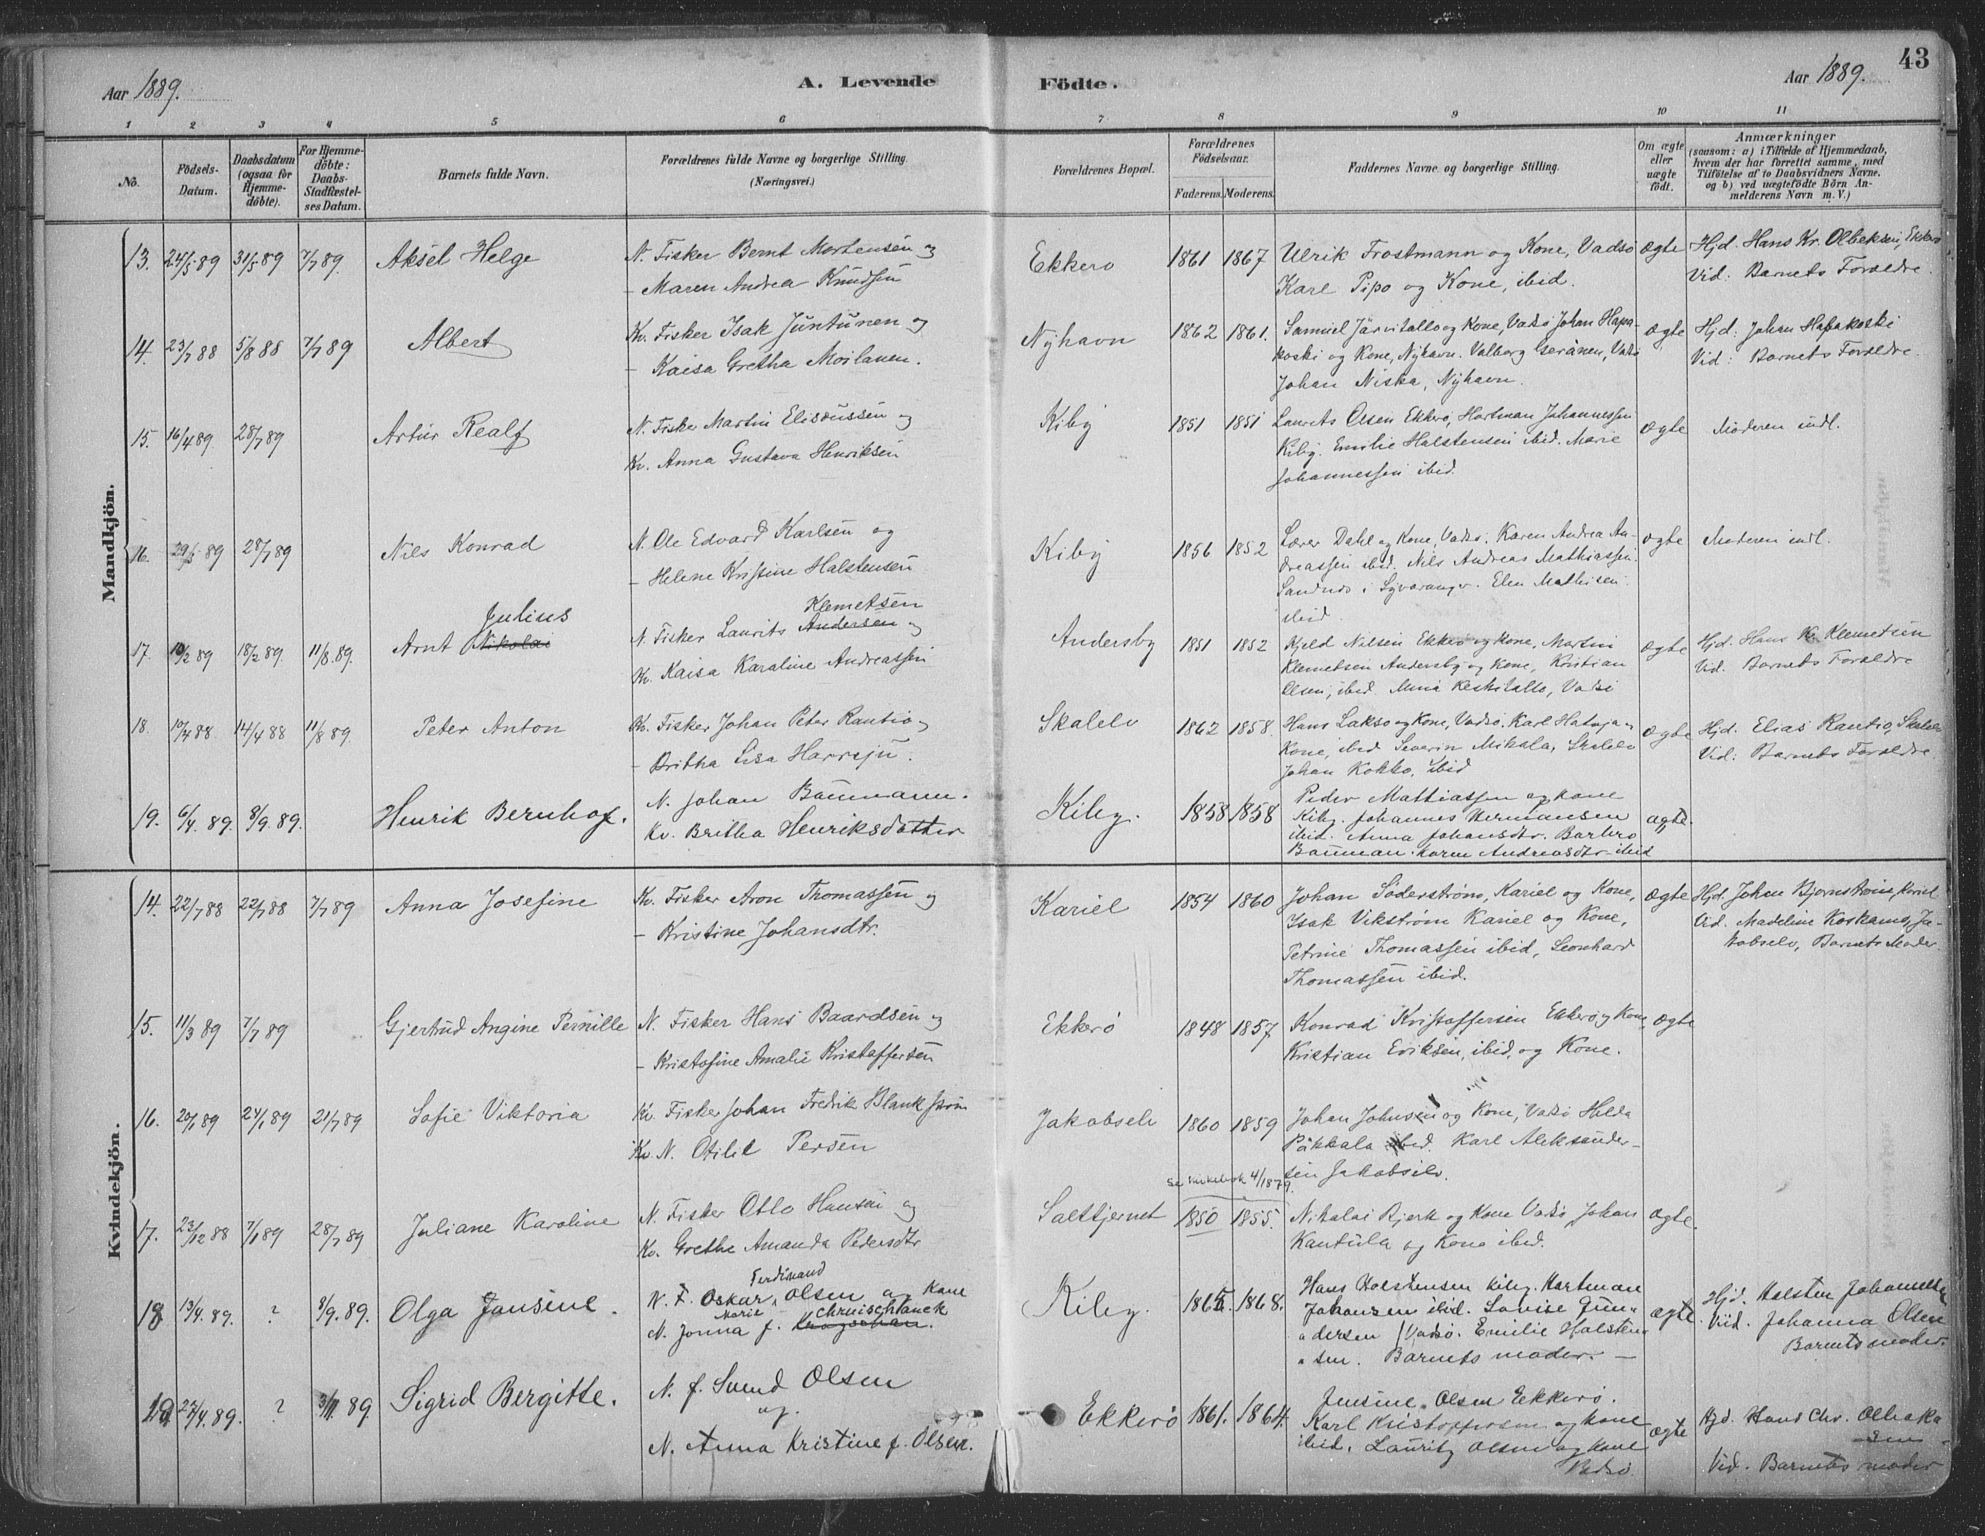 43
Aar 1889.
A. Levende
Födte.
Aar 1889.
1 2 3 4 5 6 7 8 9 10 11
No.
Födsels-
Datum.
Daabsdatum
(ogsaa for
Hjemme-
döbte).
For Hjemme-
döbte:
Daabs-
Stadfæstel-
ses Datum.
Barnets fulde Navn.
Forældrenes fulde Navne og borgerlige Stilling.
(Næringsvei.)
Forældrenes Bopæl.
Forældrenes
Födselsaar.
Faderens. Moderens.
Faddernes Navne og borgerlige Stilling.
Om ægte
eller
uægte
födt.
Anmærkninger
(saasom: a) i Tilfælde af Hjemmedaab,
hvem der har forrettet samme, med
Tilföielse af to Daabsvidners Navne,
og b) ved uægtefödte Börn An-
melderens Navn m. V.)
Mandkjön.
13. 24/5 89 31/5 89 7/7 89. Aksel Helge
N. Fisker Bernt Mortensen og
- Maren Andrea Knudsen
Ekkerø 1861 1867
Ulrik Frostmann og Kone, Vadsø
Karl Pipo og Kone, ibid.
ægte
Hjd. Hans Kr. Olbeksen, Ekkerø
Vid. Barnets Forældre.
14. 23/7 88 5/8 88 7/7 89 Albert
Kv. Fisker Isak Juntunen og
- Kaisa Gretha Moilanen.
Nyhavn 1862 1861.
Samuel Järvitallo og Kone, Vadsø Johan Hapa-
koski og Kone, Nyhavn. Valborg Geränen, Vadsø
Johan Niska, Nyhavn.
ægte
Hjd. Johan Hapakoski
Vid: Barnets Forældre.
15. 16/4 89 28/7 89 Artur Realf
N. Fisker Martin Eliseussen og
Kv. Anna Gustava Henriksen
Kiby 1851 1851
Laurits Olsen Ekkerø, Hartman Johannessen
Kiby. Emilie Halstensen ibid. Marie
Johannessen ibid.
ægte
Moderen indl.
16. 29/5 89 28/7 89 Nils Konrad
N. Ole Edvard Karlsen og
- Helene Kristine Halstensen
Kiby 1856 1852
Lærer Dahl og Kone, Vadsø. Karen Andrea An-
dreassen ibid. Nils Andreas Mathiassen
Sandnæs i Sydvaranger. Elen Mathisen
ibid.
ægte
Moderen indl.
17. 10/2 89 18/2 89. 11/8. 89.
Julius
Arnt Nikolai
Klemetsen
N. Fisker Laurits Andersen og
Kv. Kaisa Karoline Andreassen
Andersby 1851 1852
Kjeld Nilsen Ekkerø og Kone, Martin
Klemetsen Andersby og Kone, Kristian
Olsen, ibid. Mina Keskitallo, Vadsø
ægte
Hjd. Hans K. Klemetsen
Vid. Barnets Forældre
18. 10/4 88. 14/4 88 11/8 89. Peter Anton
Kv. Fisker Johan Peter Rantio og
- Britha Lisa Harreju.
Skalelv 1862 1858.
Hans Lakso og Kone, Vadsø, Karl Hataja og
Kone, ibid Severin Mikala, Skalelv
Johan Kokko, ibid
ægte
Hjd. Elias Rantio, Skalelv
Vid: Barnets Forældre.
19. 6/4. 89. 8/9. 89. Henrik Bernhof.
N. Johan Baumann.
Kv. Britha Henriksdatter
Kiby. 1858 1858
Peder Mattiassen og kone
Kiby. Johannes Hermansen
ibid. Anna Johansdtr. Barbro
Bauman. Karen Andreasdtr. ibid
ægte.
Kvindekjön.
14. 22/7 88 22/7 88 7/7 89 Anna Josefine
Kv. Fisker Aron Thomassen og
- Kristine Johansdtr.
Kariel 1854 1860
Johan Söderstrøm, Kariel og Kone,
Isak Vikstrøm Kariel og Kone,
Petrine Thomassen ibid, Leonhard
Thomassen ibid.
ægte
Hjd. Johan Bjørnstrøm, Kariel
Vid. Madeline Koskamo, Ja-
kobselv, Barnets Moder.
15. 11/3 89 7/7 89 Gjertrud Angine Pernille
N. Fisker Hans Baardsen og
- Kristofine Amalie Kristoffersen
Ekkerø 1848 1857.
Konrad Kristoffersen Ekkerø og Kone,
Kristian Eriksen, ibid, og Kone.
ægte
16. 20/1 89 24/1 89 21/7 89 Sofie Viktoria
Kv. Fisker Johan Fredrik Blankstrøm
Kv. N. Otilie Persen
Jakobselv 1860 1859
Johan Johnsen og Kone, Vadsø Hilda
Päkkala ibid. Karl Aleksander-
sen Jakobselv.
Se Kirkebok 4/1879.
17. 23/12 88 7/1 89 28/7 89 Juliane Karoline
N. Fisker Otto Hansen og
Kv. Grethe Amanda Pedersdtr
Saltkjernet 1850 1855.
Nikolai Bjerk og Kone Vadsø Johan
Kantula og Kone ibid.
ægte.
18 13/4. 89. ? 8/9. 89. Olga Jansine.
Ferdinand
N. F. Oskar, Olsen og Kone
Marie Chruischanck
N. Jonna f. Krogschan.
Kiby. 1865. 1868.
Hans Holstensen Kiby. Hartman
Johansen ibid. Lovise Gun-
dersen / Vadsø. Emilie Halsten-
sen. Barnets moder. -
ægte.
Hjd. Holsten Johannesen
Vid. Johanna Olsen
Barnets moder.
19 27/4. 89. ? 3/11. 89. Sigrid Bergitte.
N. f. Svend Olsen
og.
N. Anna Kristine f. Olsen.
Ekkerø 1861. 1864.
Jensine Olsen Ekkerø.
Karl Kristoffersen og kone
ibid. Lauritz Olsen og kone
Vadsø
ægte
Hjd. Hans Chr. Olbek-
sen
Vid. Barnets moder